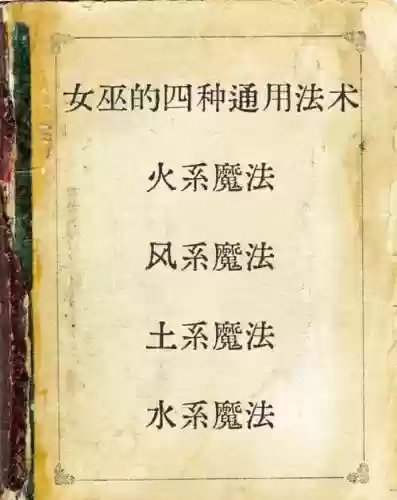 女巫的四种通用法术
火系魔法
风系魔法
土系魔法
水系魔法